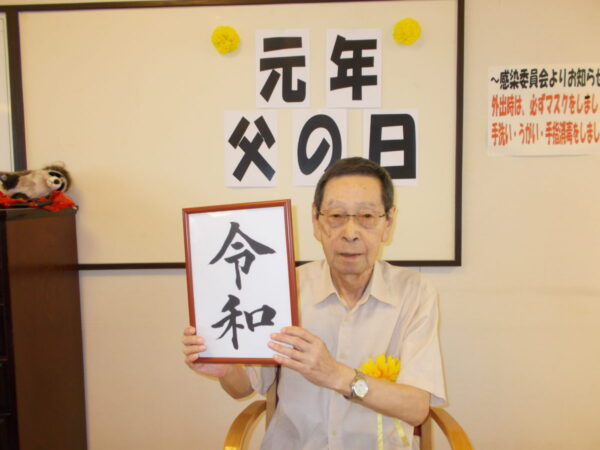 元年
父の日
令和
~感染委員会よりお知らせ
外出時は、必ずマスクをしまし
手洗い・うがい・手指消毒をしまし